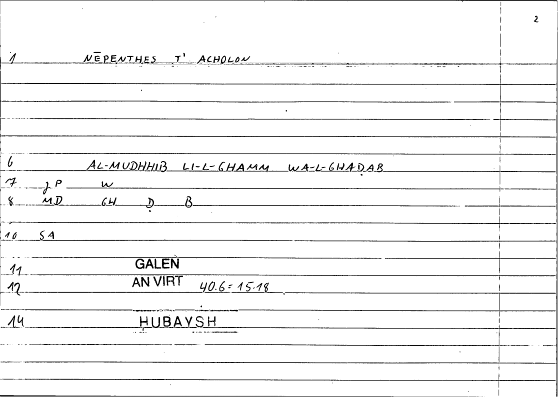 2
1 NĒPENTHES T' ACHOLON
6 AL-MUDHHIB LI-L-GHAMM WA-L-GHAḌAB
7 JP W
8 MD GH Ḍ B
10 SA
11 GALEN
12 AN VIRT 40.6 = 15.18
14 ḤUBAYSH